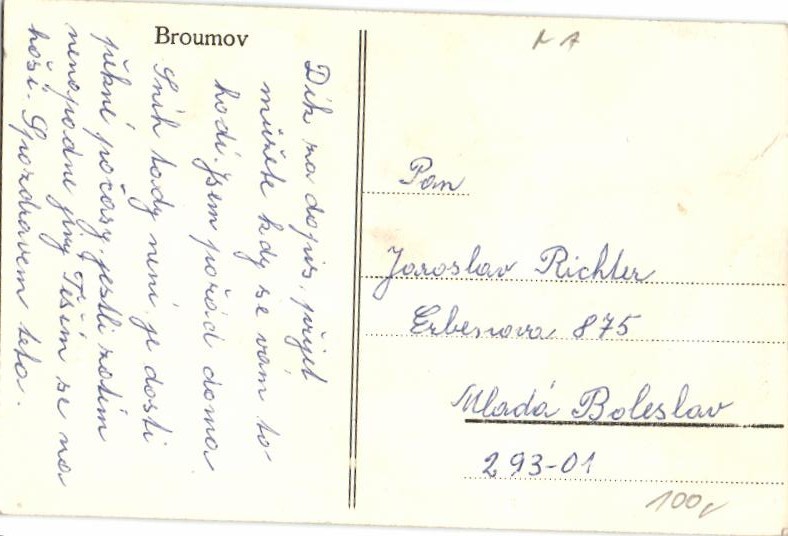 Broumov
Dík za dopis. přijet
můžete kdy se vám to
hodí. Jsem pořád doma
Sníh tady není. je dosti
pěkné počasy jestli zatím
nenapadne jiný. Těším se na
hoši. S pozdravem teta.
Pan
Jaroslav Richter
Erbenova 875
Mladá Boleslav
293-01
100,